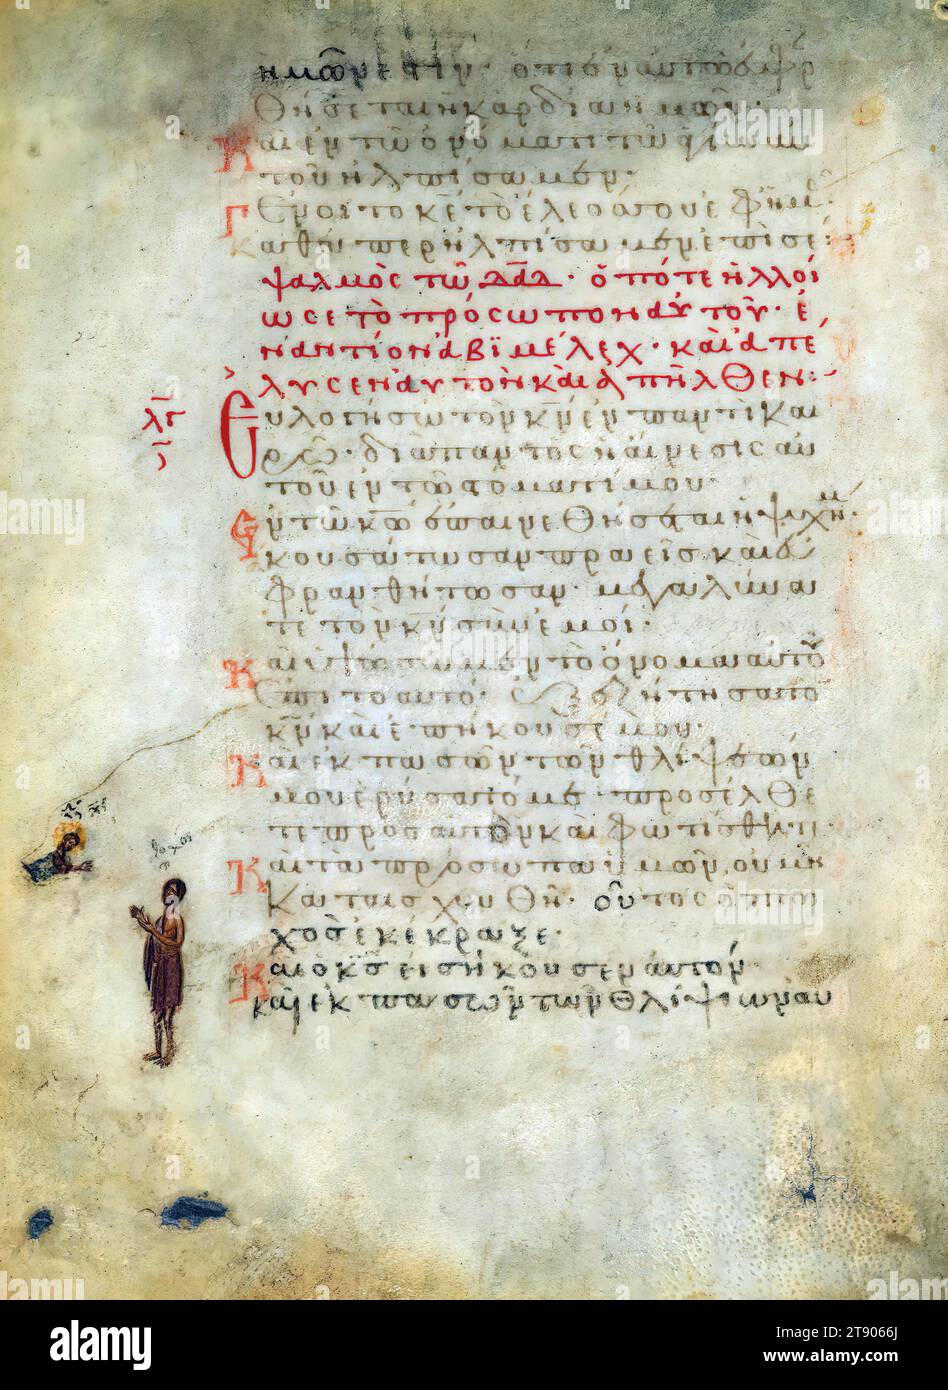 ἡμῶν ἐστιν· ὅτι ἐν αὐτῶ εὐφρ
θήσεται ἡ καρδία ἡμῶν·
Καὶ ἐν τῶ ὀνόματι τῶ ἁγίω αὐ
τοῦ ἠλπίσαμεν·
Γένοιτο κε τὸ ἔλεός σου ἐφ ἡμᾶς·
καθάπερ ἠλπίσαμεν ἐπὶ σέ:
ψαλμὸς τῶ δᾱδ· ὁπότε ἠλλοί
ωσε τὸ πρόσωπον αὐτοῦ· ἐ
ναντίον ἀβιμέλεχ· καὶ ἀπέ
λυσεν αὐτὸν καὶ ἀπῆλθεν:
λγ
Εὐλογήσω τὸν κν ἐν παντὶ και
ρῶ· διαπαντὸς ἡ αἴνεσις αὐ
τοῦ ἐν τῶ στόματί μου·
Ἐν τῶ κω ἐπαινεθήσεται ἡ ψυχή μ·
ἀκουσάτωσαν πραεῖς καὶ εὐ
φρανθήτωσαν· μεγαλύνα
τε τὸν κν σὺν ἐμοί·
Καὶ ὑψώσωμεν τὸ ὄνομα αὐτοῦ
ἐπιτοαυτό· ἐξεζήτησα τὸν
κν καὶ ἐπήκουσέ μου·
Καὶ ἐκ πασῶν τῶν θλίψεών
μου ἐρύσατό με· προσέλθε
τε πρὸς αὐτὸν καὶ φωτίσθητε
Καὶ τὰ πρόσωπα ὑμῶν οὐ μὴ
καταισχυνθῆ· οὗτος ὁ πτω
χὸς ἐκέκραξε·
Καὶ ὁ κς εἰσήκουσεν αὐτοῦ·
καὶ ἐκ πασῶν τῶν θλίψεων αὐ
ις χς
alamy
Image ID: 2T9066J
www.alamy.com